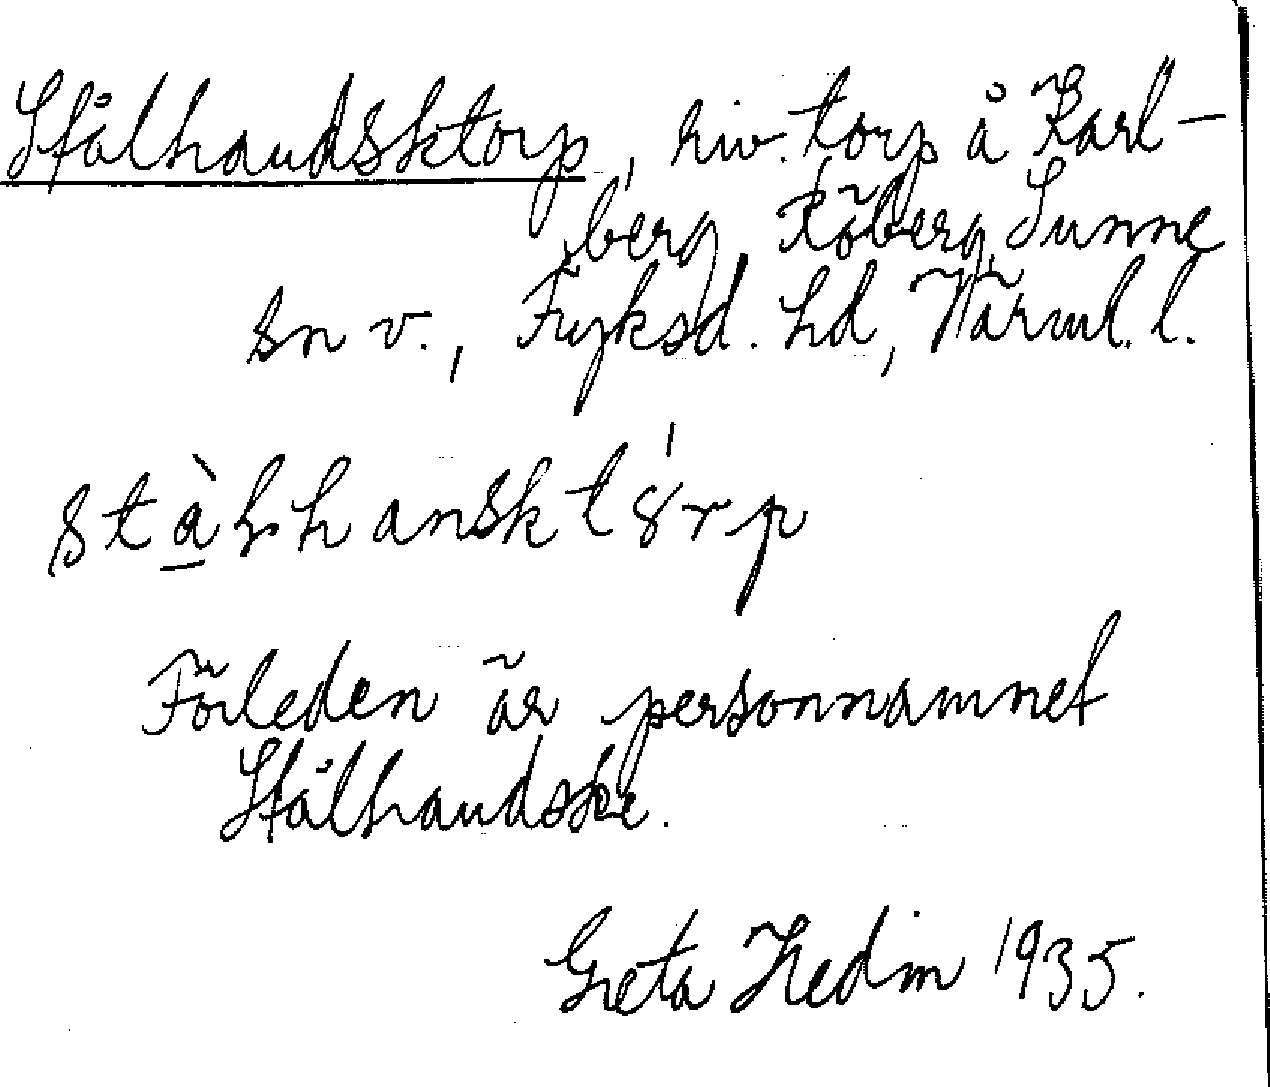 Stålhandsktorp, riv. torp å Karl-
berg, Röberg, Sunne
sn v., Fryksd. hd, Värml. l.
Förleden är personnamnet
Stålhandske.
Greta Hedin 1935.